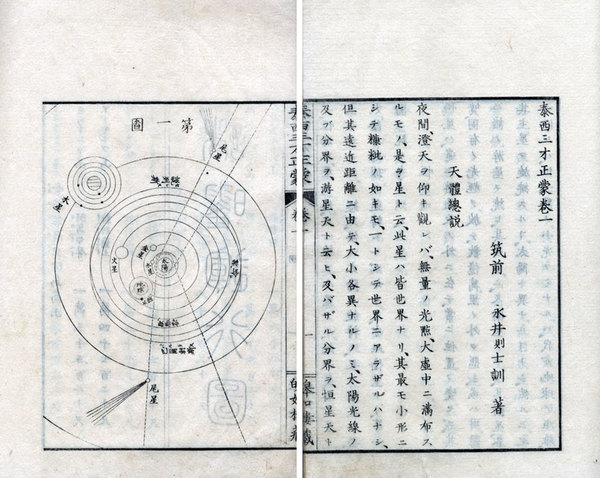 泰西三才正蒙卷一
筑前 永井則士訓 著
天體總説
夜間澄天ヲ仰キ觀レバ、無量ノ光㸃、大虚中ニ滿布ス
ルモノ、是ヲ星ト云、此星ハ皆世界ナリ、其最モ小形ニ
シテ糠粃ノ如キモ、一トシテ世界ニアラザルハナシ、
但其遠近距離ニ由テ、大小各異ナルノミ、太陽光線ノ
及ブ分界ヲ、游星天ト云ヒ、及バザル分界ヲ、恒星天ト
泰西三才正蒙
卷一
一
第一圖
尾星
木星
火星
太陽
地球
尾星